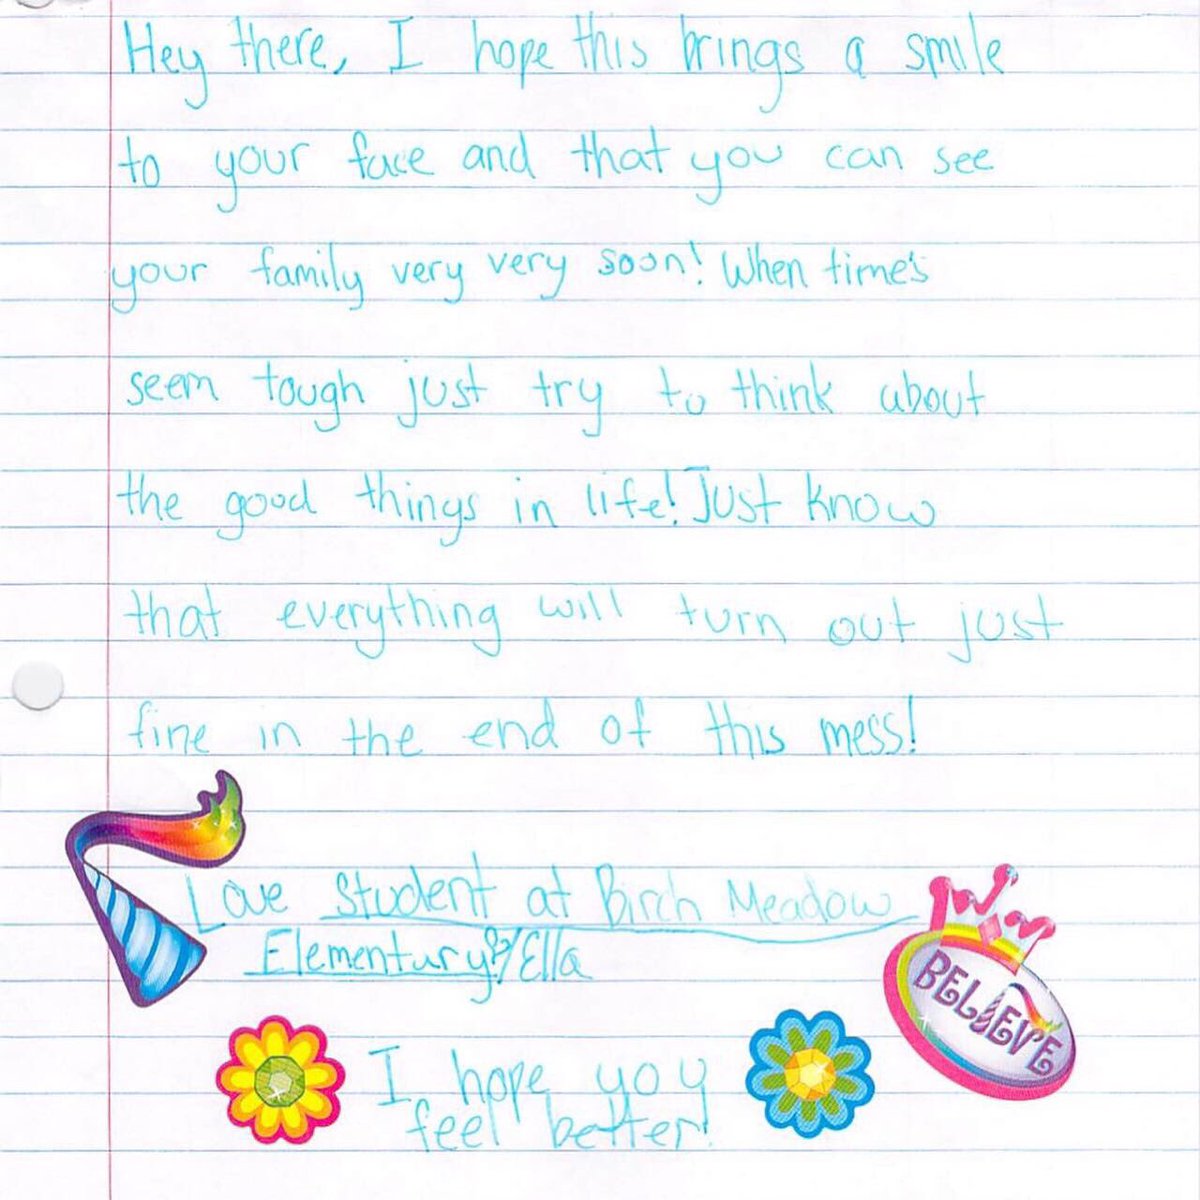 Hey there, I hope this brings a smile
to your face and that you can see
your family very very soon! When time's
seem tough just try to think about
the good things in life! Just know
that everything will turn out just
fine in the end of this mess!
Love Student at Birch Meadow
Elementury/Ella
BELIEVE
I hope you
feel better!